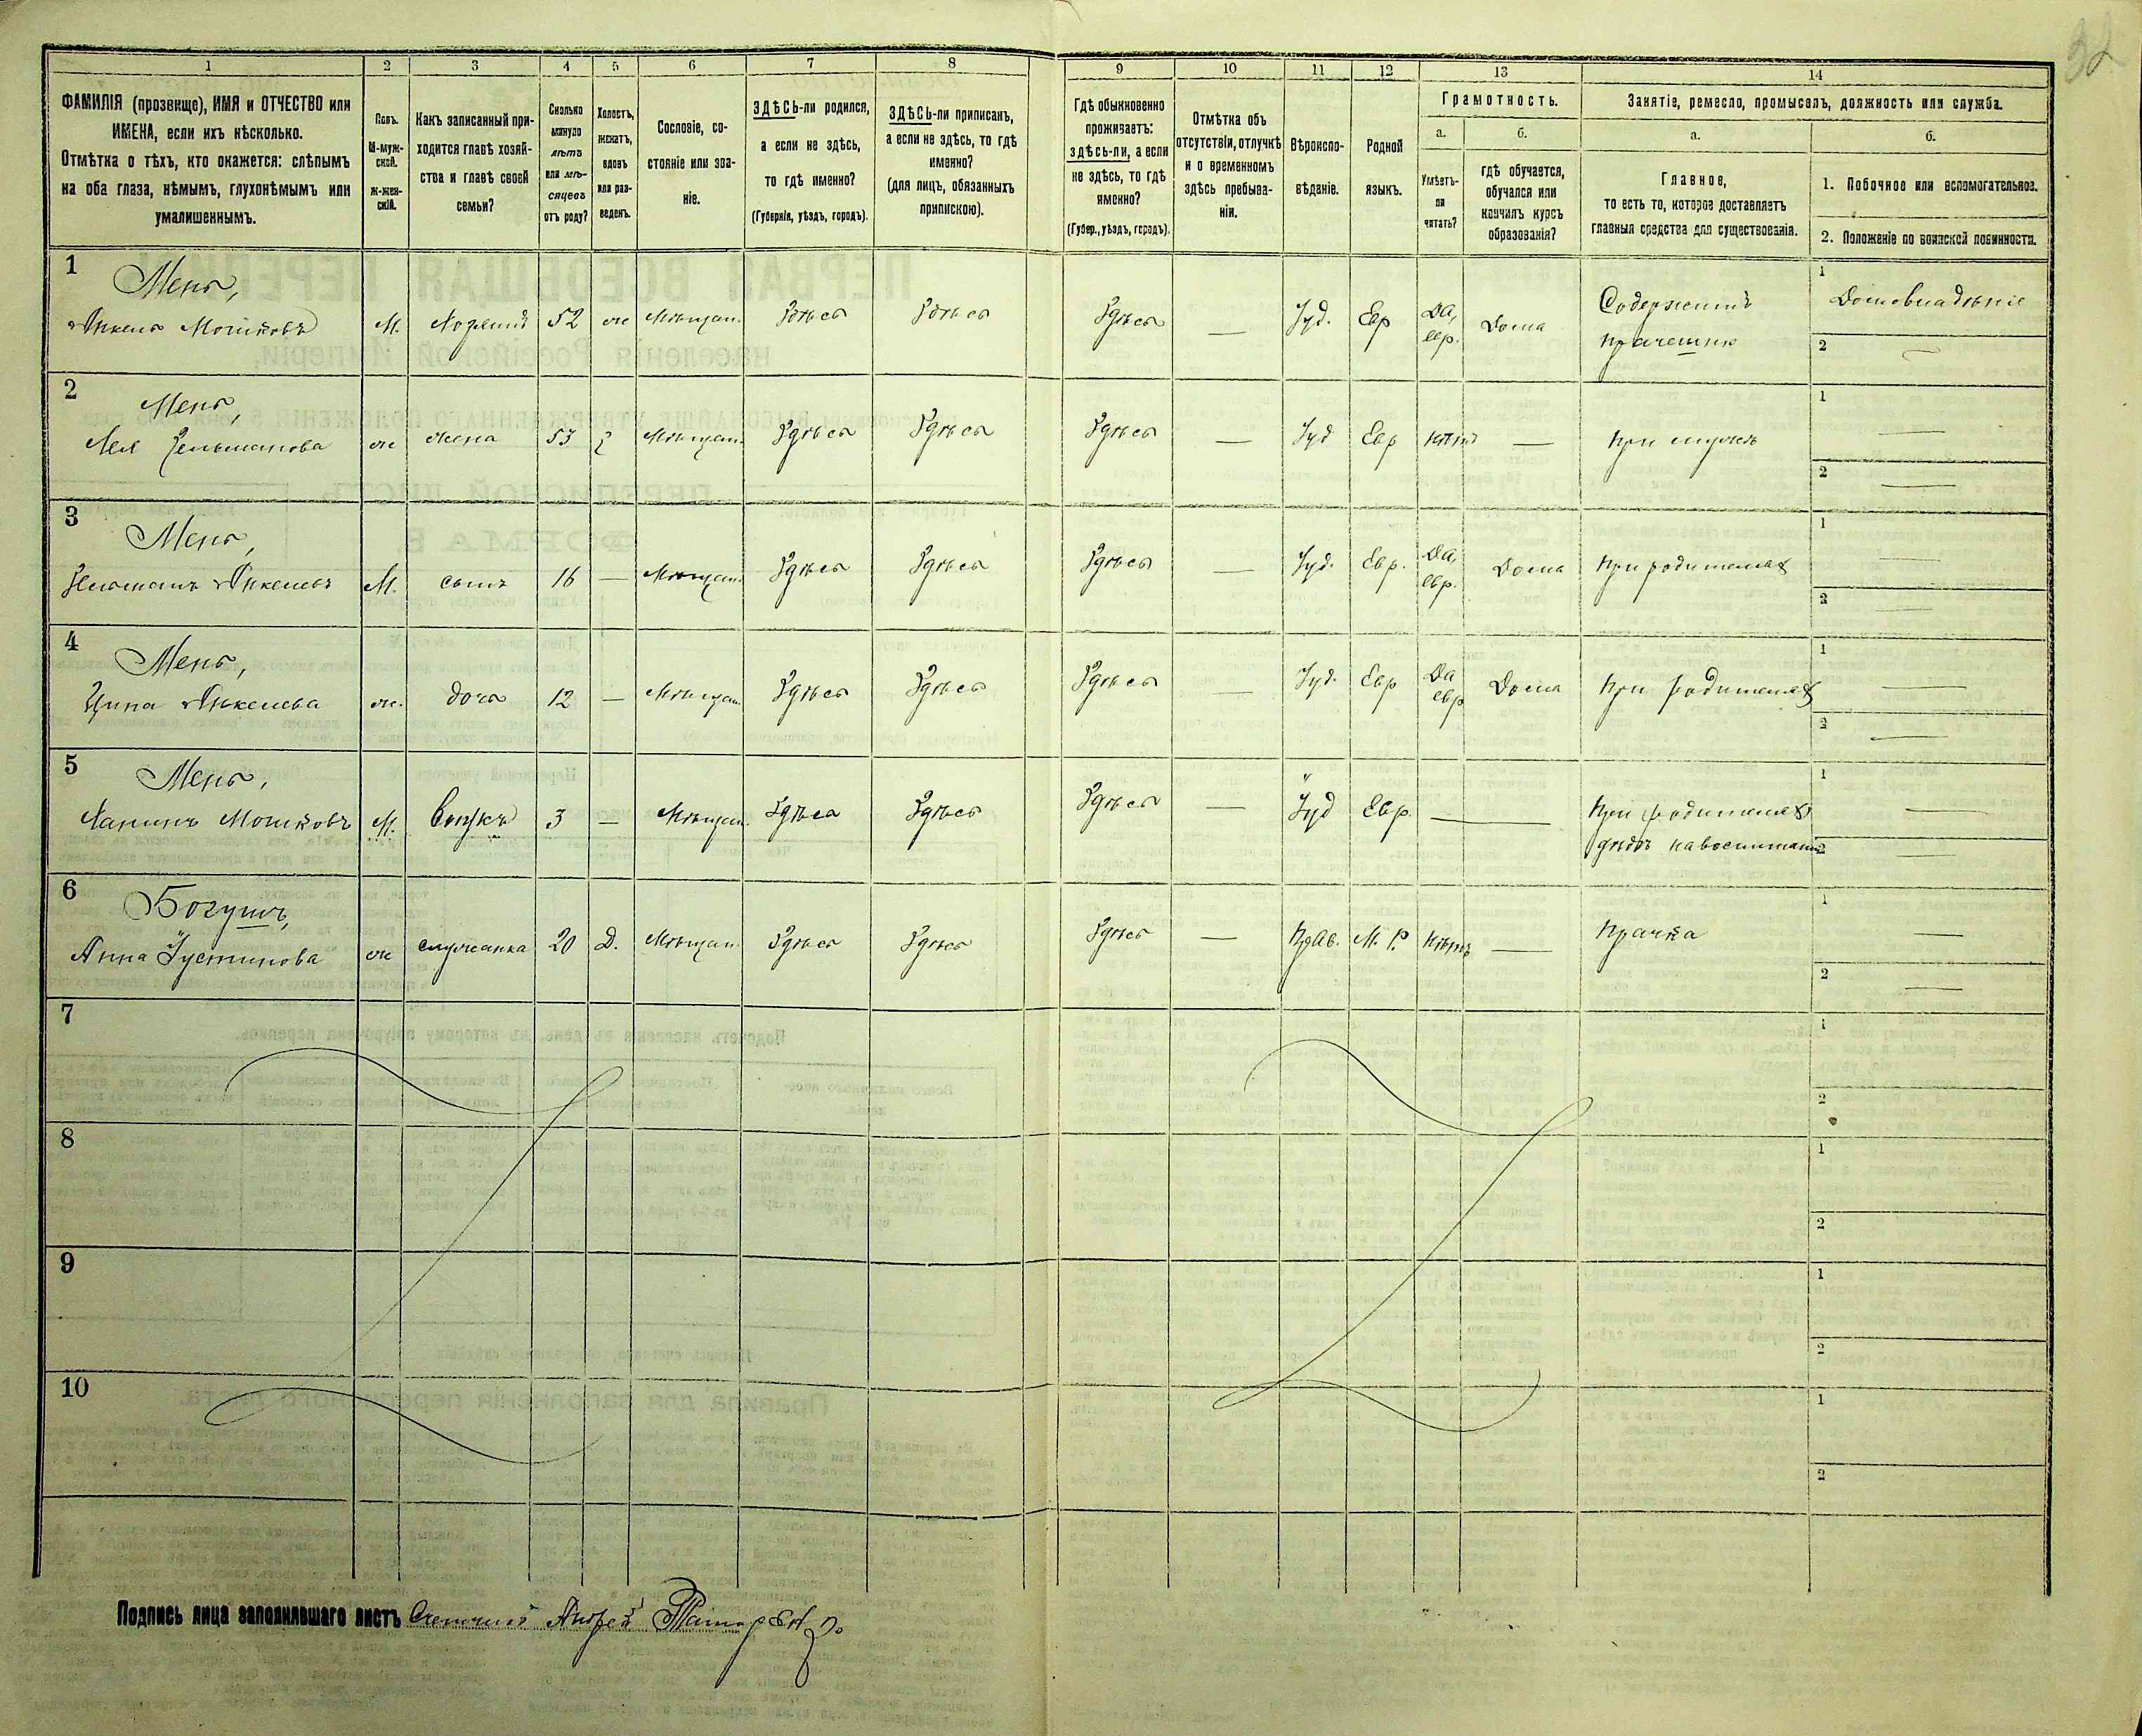 32
1 2 3 4 5 6 7 8 9 10 11 12 13 14
ФАМИЛІЯ (прозвище), ИМЯ и ОТЧЕСТВО или
ИМЕНА, если ихъ нѣсколько.
Отмѣтка о тѣхъ, кто окажется: слѣпымъ
на оба глаза, нѣмымъ, глухонѣмымъ или
умалишеннымъ.
Полъ.
М-муж-
ской.
ж-жен-
скій.
Какъ записанный при-
ходится главѣ хозяй-
ства и главѣ своей
семьи?
Сколько
минуло
лѣтъ
или мѣ-
сяцевъ
отъ роду?
Холостъ,
женатъ,
вдовъ
или раз-
веденъ.
Сословіе, со-
стояніе или зва-
ніе.
ЗДѢСЬ-ли родился,
а если не здѣсь,
то гдѣ именно?
(Губернія, уѣздъ, городъ).
ЗДѢСЬ-ли приписанъ,
а если не здѣсь, то гдѣ
именно?
(для лицъ, обязанныхъ
припискою).
Гдѣ обыкновенно
проживаетъ:
здѣсь-ли, а если
не здѣсь, то гдѣ
именно?
(Губер., уѣздъ, городъ).
Отмѣтка объ
отсутствіи, отлучкѣ
и о временномъ
здѣсь пребыва-
ніи.
Вѣроиспо-
вѣданіе.
Родной
языкъ.
Грамотность.
а.
Умѣетъ-
ли
читать?
б.
гдѣ обучается,
обучался или
кончилъ курсъ
образованія?
Занятіе, ремесло, промыселъ, должность или служба.
а.
Главное,
то есть то, которое доставляетъ
главныя средства для существованія.
б.
1. Побочное или вспомогательное.
2. Положеніе по воинской повинности.
1 Мень,
Янкель Мошковъ М. Хозяинъ 52 ж Мѣщан. Здѣсь Здѣсь Здѣсь — Іуд. Евр Да, евр. Дома Содержитъ 1 Домовладѣніе
2 —
2 Мень,
Лея Зельманова ж жена 53 Мѣщан. Здѣсь Здѣсь Здѣсь — Іуд Евр нѣтъ — При мужѣ 1 —
2 —
3 Мень,
Зельманъ Янкелевъ М. сынъ 16 — Мѣщан. Здѣсь Здѣсь Здѣсь — Іуд. Евр. Да, евр. Дома При родителях 1 —
2 —
4 Мень,
Ципа Янкелева ж. дочь 12 — Мѣщан. Здѣсь Здѣсь Здѣсь — Іуд. Евр Да евр Дома При родителях 1 —
2 —
5 Мень,
Мошковъ М. Внукъ 3 — Мѣщан. Здѣсь Здѣсь Здѣсь — Іуд Евр. — При родителях 1 —
2 —
6 Богушъ,
Анна Іустинова ж служанка 20 Д. Мѣщан. Здѣсь Здѣсь Здѣсь — Прав. М. Р. Нѣтъ — Прачка 1 —
2 —
7 1
2
8 1
2
9 1
2
10 1
2
Подпись лица заполнявшаго листъ Счетчикъ Андрей